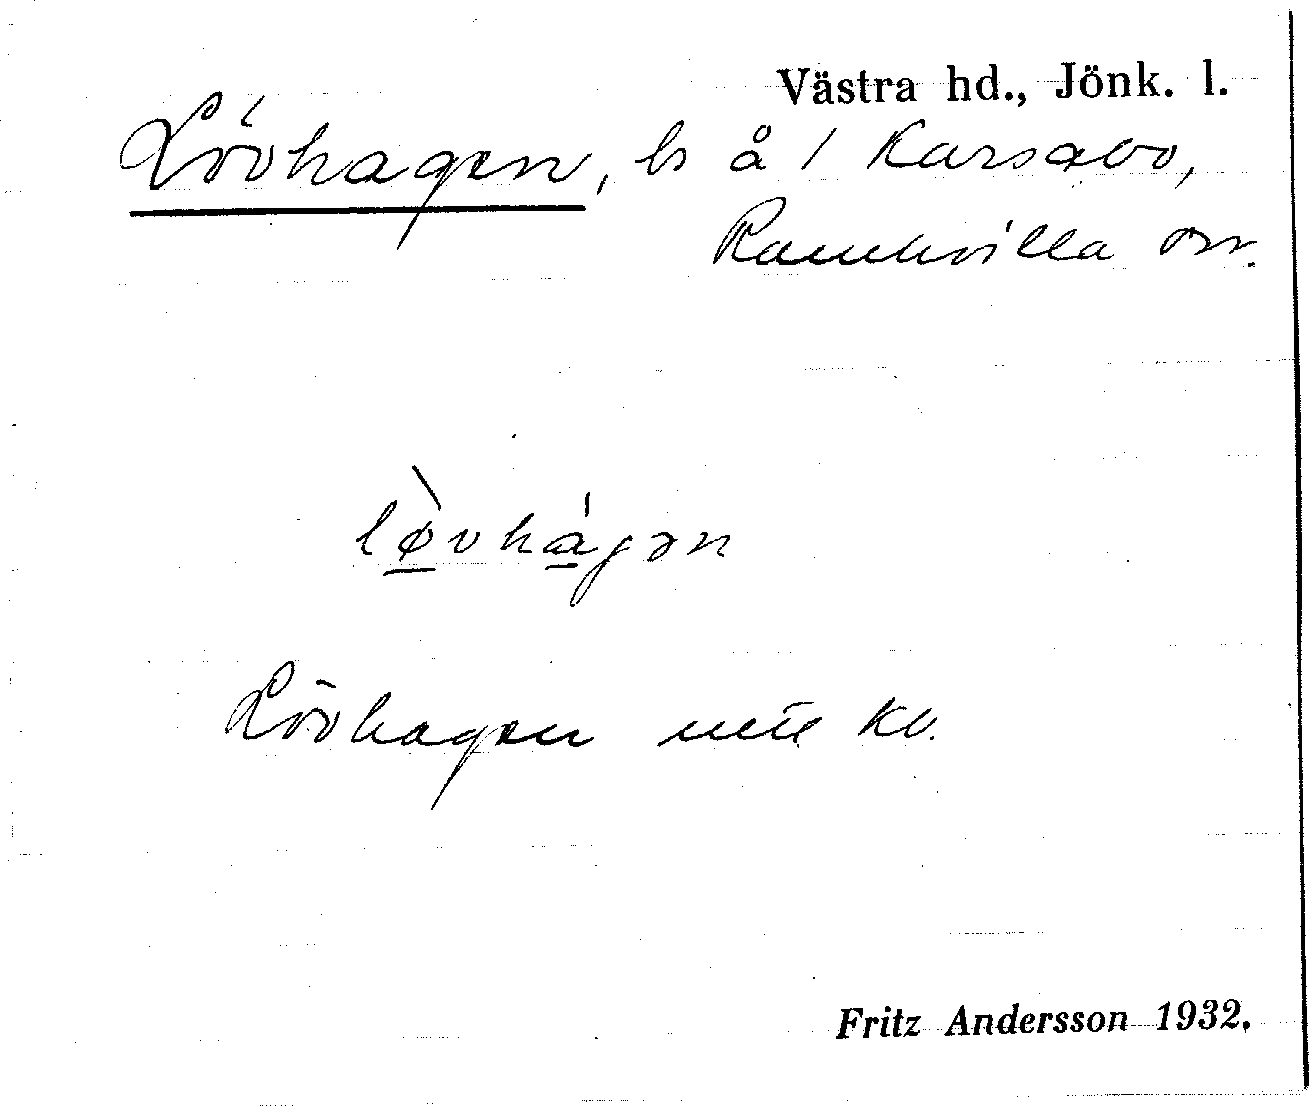 Västra hd., Jönk. l.
Lövhagen, ls å 1 Karsabo,
Ramkvilla sn.
lø̀vhágən
Lövhagen Kb.
Fritz Andersson 1932.